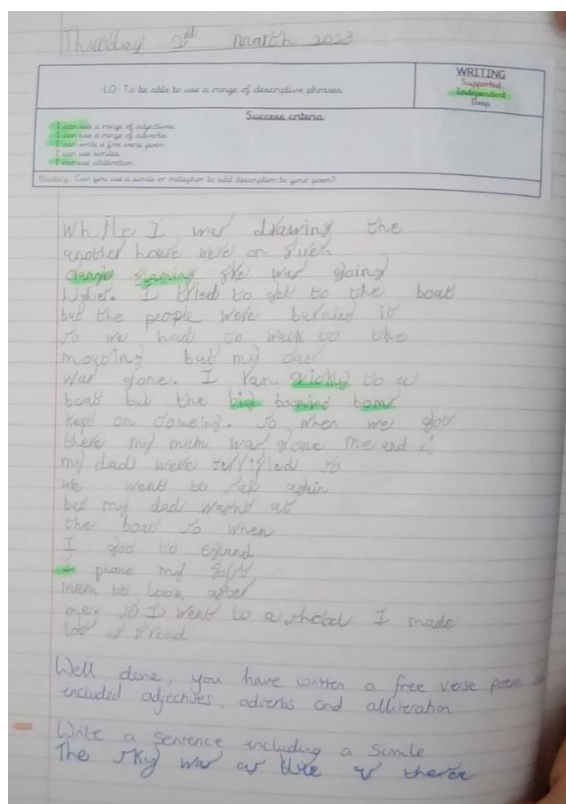 Thursday 2nd march 2023
LO To be able to use a range of descriptive phrases.
WRITING
Supported
Independent
Deep
Success criteria:
I can use a range of adjectives.
I can use a range of adverbs.
I can write a free verse poem.
I can use similes.
I can use alliteration.
Mastery: Can you use a simile or metaphor to add description to your poem?
While I was drawing the
another house were on
flaming was going
higher. I tried to get to the boat
but the people were burning it
so we had to walk to the
but my
was gone. I ran to a
boat but the big booming
kept on comeing. so when we got
there my mum was gone me and
my dad were so
we went to again
but my dad at
the boat so when
I got to
I phone my
mum to look after
me. so I went to a I made
Well done, you have written a free verse poem
included adjectives, adverbs and alliteration
Write a sentence including a simile
The sky was as as